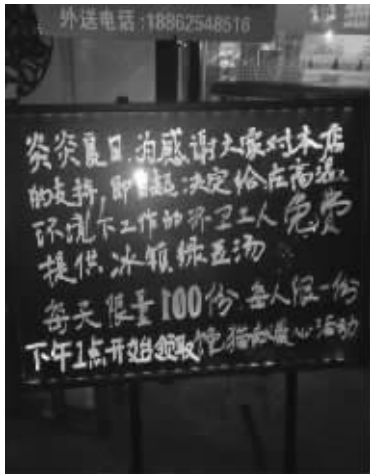 外送电话:18862548516
炎炎夏日,为感谢大家对本店
的支持,即日起,决定给在高温
环境下工作的环卫工人免费
提供冰镇绿豆汤
每天限量100份 每人限一份
下午1点开始领取 馋猫献爱心活动